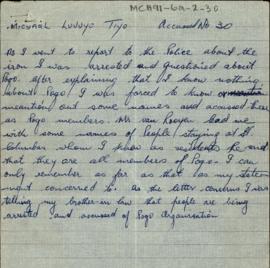 MCA91-6A-2-30.
Michael Luvuyo Tiyo Accused No 30
As I went to report to the Police about the
iron I was arrested and questioned about
Poqo. After explaining that I know nothing
about Poqo, I was forced to know
meantion out some names and accused them
as Poqo members. Mr van Rooyen had me
with some names of People staying at St
Columbas whom I know as residents he said
that they are all members of Poqo. I can
only remember as far as that as my state
ment concerned to. As the letter concerns I was
telling my brother-in law that people are being
arrested and accused of Poqo Organisation